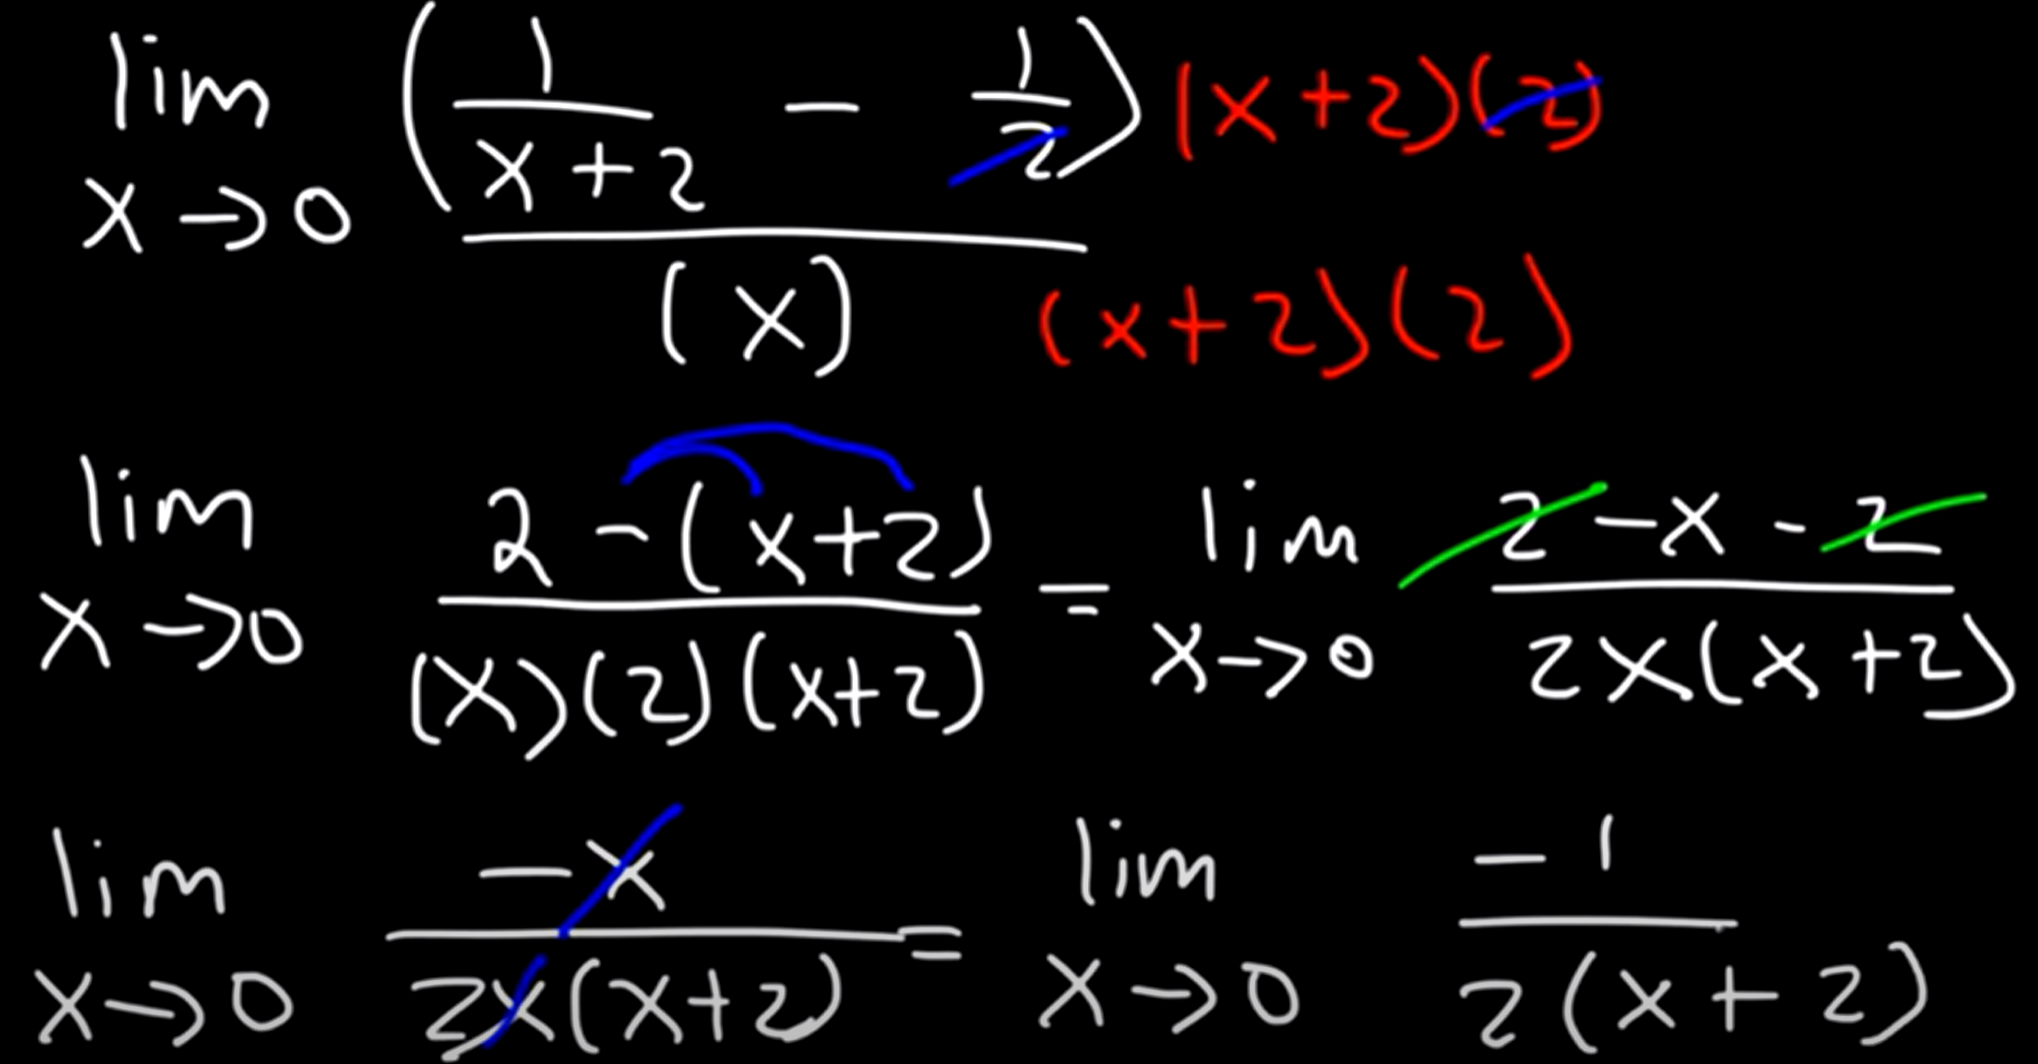 lim x→0 (1/(x+2) - 1/2) (x+2)(2) / (x) (x+2)(2)
lim x→0 2-(x+2) / (x)(2)(x+2) = lim x→0 2-x-2 / 2x(x+2)
lim x→0 -x / 2x(x+2) = lim x→0 -1 / 2(x+2)